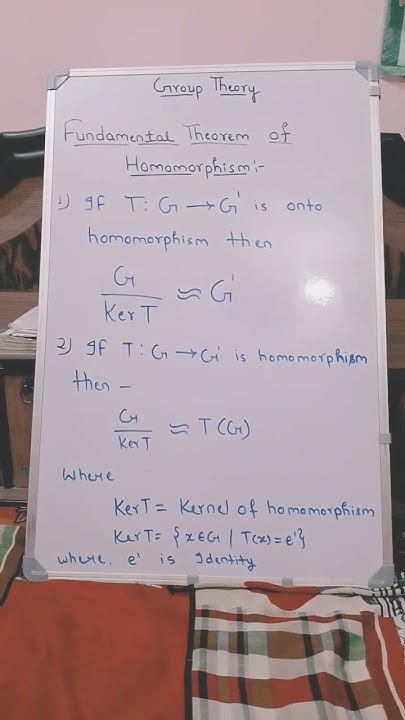 Group Theory
Fundamental Theorem of
Homomorphism:-
1) If T: G → G' is onto
homomorphism then
G
Ker T
≈ G'
2) If T: G → G' is homomorphism
then -
G
Ker T
≈ T(G)
Where
KerT = Kernel of homomorphism
KerT = {x∈G / T(x) = e'}
where, e' is Identity